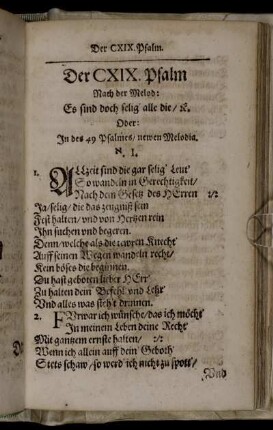 Der CXIX. Psalm.
Der CXIX. Psalm
Nach der Melod:
Es sind doch selig alle die/ ꝛc.
Oder:
In des 49 Psalmes/ newen Melodia.
א. I.
1. ALLzeit sind die gar selig' Leut'
So wandeln in Gerechtigkeit/
Nach dem Gesetz des HErren :/:
Ja/ selig/ die das zeugnüß sein
Fest halten/ vnd von Hertzen rein
Ihn suchen vnd begeren.
Denn/ welche als die tewren Knecht'
Auff seinen Wegen wandeln recht/
Kein böses die beginnen.
Du hast geboten lieber HErr
Zu halten dein' Befehl vnd Lehr'
Vnd alles was steh't drinnen.
2. FVrwar ich wünsche/ das ich möcht'
In meinem Leben deine Recht'
Mit gantzem ernste halten/ :/:
Wenn ich allein auff dein' Geboth'
Stets schaw/ so werd' ich nicht zu spott/
Vnd